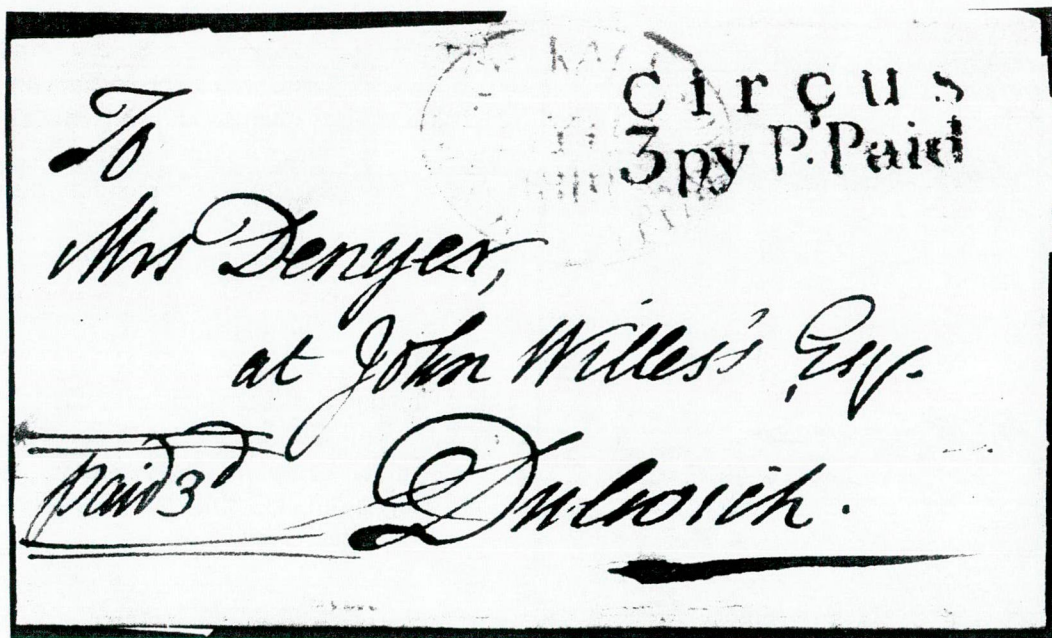 Circus
3py P. Paid
To
Mrs Denyer,
at John Willes's Esq.
paid 3d
Dulwich.